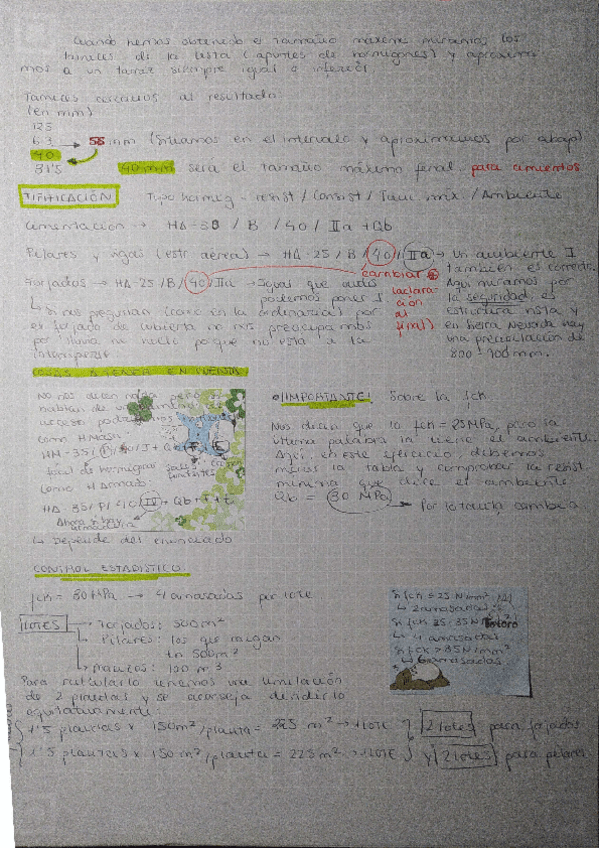 Cuando hemos obtenido el tamaño máximo miramos los
tamices de la lista (apuntes de hormigones) y aproxima
mos a un tamiz siempre igual o inferior
Tamices cercanos al resultado
(en mm)
125
63 → 55 mm (Situamos en el intervalo y aproximamos por abajo)
40
31'5 40 mm será el tamaño máximo final para cimientos
TIPIFICACIÓN Tipo hormig - resist / Consist / Tam. máx. / Ambiente
Cimentación → HA-30 / B / 40 / IIa + Qb
Pilares y vigas (estr. aerea) → HA-25 / B / 40 / IIa → un ambiente I
también es correcto.
Forjados → HA-25 / B / 40 / IIa → Igual que antes
podemos poner I
cambiar
(aclara-
ción
al
final)
Aquí miramos por
la seguridad, es
estructura mixta y
en Sierra Nevada hay
una precipitación de
800 - 900 mm.
↳ Si nos preguntan (como en la ordinaria) por
el forjado de cubierta no nos preocupamos
por lluvia, ni nieve porque no está a la
intemperie
COSAS A TENER EN CUENTA
No nos dicen nada pero si
hablan de un
acceso podríamos
como HMasa:
Como H Armado:
↳ Depende del enunciado
¡IMPORTANTE! Sobre la fck
Nos dicen que la fck = 25 MPa, pero la
última palabra la tiene el ambiente.
Aquí, en este ejercicio, debemos
mirar la tabla y comprobar la resist.
mínima que dice el ambiente
Qb = 30 MPa → Por lo tanto cambia
CONTROL ESTADÍSTICO:
fck = 30 MPa → 4 amasadas por lote
LOTES → Forjados: 500 m²
→ Pilares: los que caigan
en 500 m²
→ Macizos: 100 m³
Si fck ≤ 25 N/mm²
↳ 2 amasadas
Si fck 25-35 N/mm²
↳ 4 amasadas
Si fck > 35 N/mm²
↳ 6 amasadas
Para calcularlo tenemos una limitación
de 2 plantas y se aconseja dividirlo
equitativamente:
1'5 plantas × 150 m²/planta = 225 m² → 1 LOTE 2 lotes para forjados
1'5 plantas × 150 m²/planta = 225 m² → 1 LOTE y 2 lotes para pilares